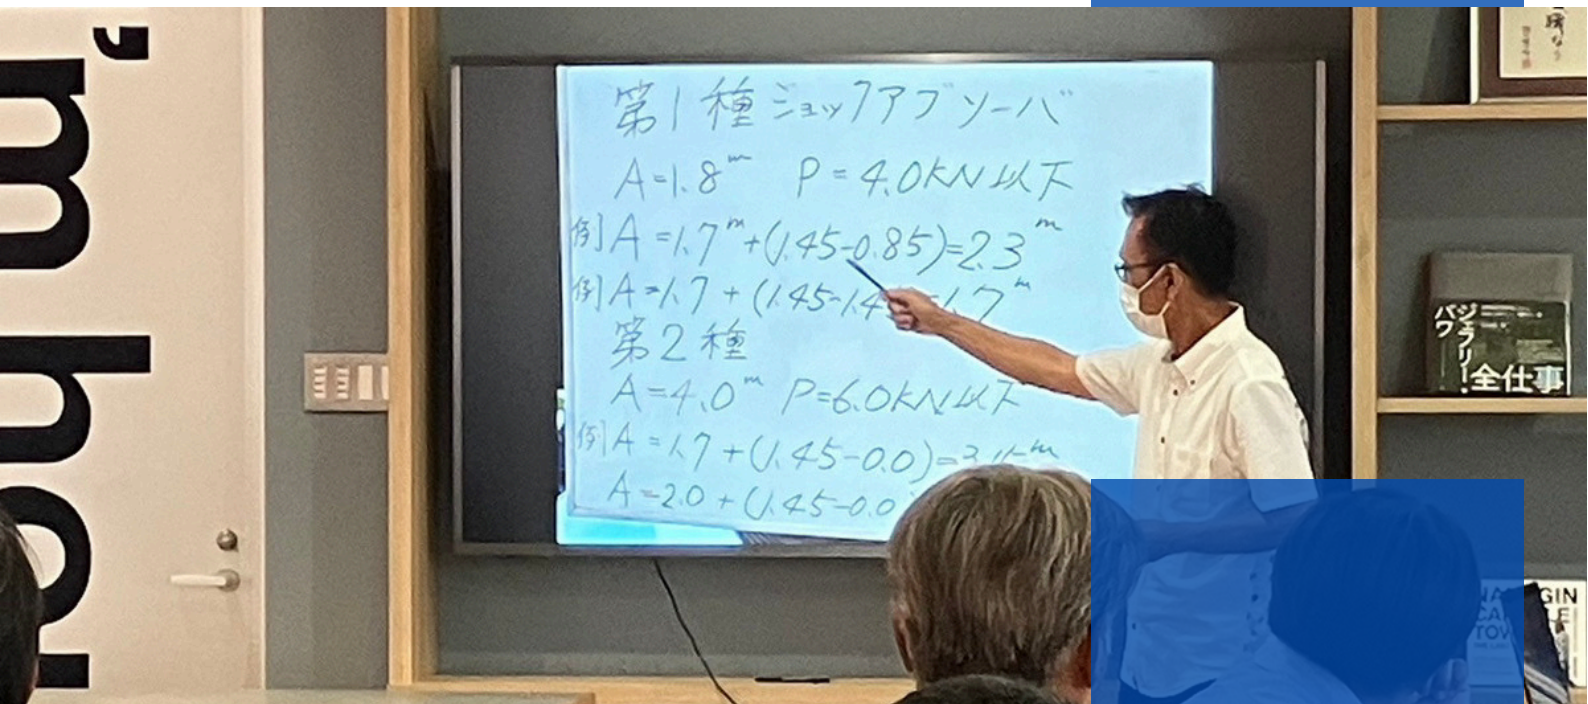 'm ho
第1種ショックアブソーバ
A=1.8m P=4.0KN以下
例 A=1.7m+(1.45-0.85)=2.3m
例 A=1.7+(1.45-1.4 1.7m
第2種
A=4.0m P=6.0KN以下
例 A=1.7+(1.45-0.0)=3. m
A=2.0+(1.45-0.0
ジェフリー・
バワ
全仕事
GIN
CA LE
TOW